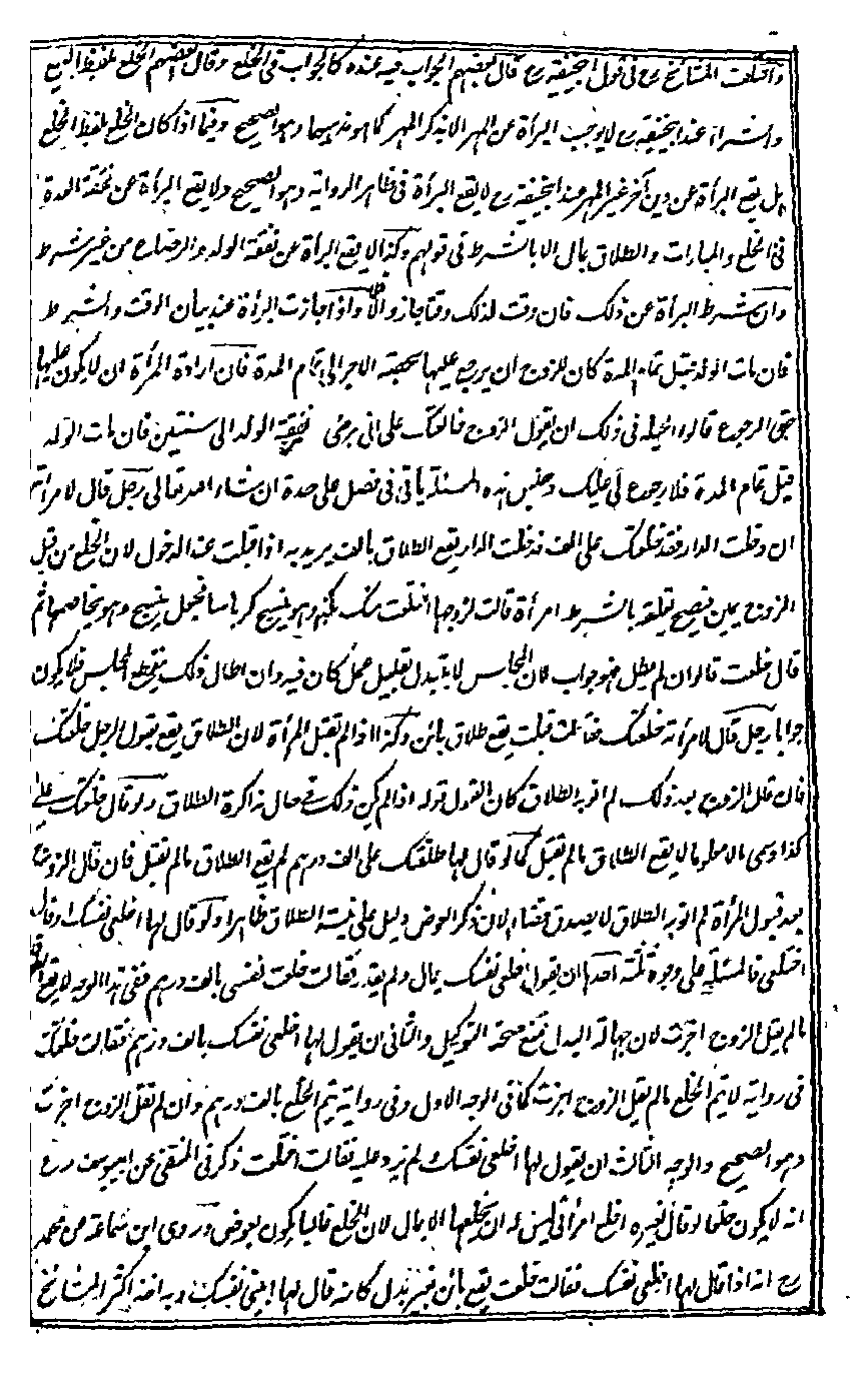 واختلف المشائخ رح فى قول ابيحنيفة رح قال بعضهم الجواب فيه عنده كالجواب فى الخلع وقال بعضهم الخلع بلفظ البيع
والشراء عند ابيحنيفة رح لا يوجب البرأة عن المهر الا بذكر المهر كما هو مذهبهما وهو الصحيح وفيما اذا كان الخلع بلفظ الخلع
هل يقع البرأة عن دين آخر غير المهر عند ابيحنيفة رح لا يقع البرأة فى ظاهر الرواية وهو الصحيح ولا يقع البرأة عن نفقة العدة
فى الخلع والمبارات والطلاق بمال الا بالشرط فى قولهم وكذا لا يقع البرأة عن نفقة الولد والرضاع من غير شرط
وان شرط البرأة عن ذلك فان وقت لذلك وقتا جاز والا فلا واذا جازت البرأة عند بيان الوقت والشرط
فان مات الولد قبل تمام المدة كان للزوج ان يرجع عليها بحصة الاجر الى تمام المدة فان ارادة المرأة ان لا يكون عليها
حق الرجوع قالوا الحيلة فى ذلك ان يقول الزوج خالعتك على انى برئ من نفقة الولد الى سنتين فان مات الولد
قبل تمام المدة فلا رجوع لى عليك وجنس هذه المسئلة ياتى فى فصل على حدة ان شاء الله تعالى رجل قال لامرأته
ان دخلت الدار فقد خلعتك على الف فدخلت الدار يقع الطلاق بالف يريد به اذا قبلت عند الدخول لان الخلع من قبل
الزوج يمين فيصح تعليقه بالشرط امرأة قالت لزوجها اختلعت منك بكذا وهو ينسج كرباسا فجعل ينسج وهو يخاصمها ثم
قال خلعت قالوا ان لم يطل فهو جواب لان المجلس لا يتبدل بقليل عمل كان فيه وان اطال ذلك ينقطع المجلس فلا يكون
جوابا رجل قال لامرأته خلعتك فقالت قبلت يقع طلاق بائن وكذا اذا لم تقبل المرأة لان الطلاق يقع بقول الرجل خلعتك
فان قال الزوج بعد ذلك لم انو به الطلاق كان القول قوله اذا لم يكن ذلك فى حال مذاكرة الطلاق ولو قال خلعتك على
كذا وسمى مالا معلوما لا يقع الطلاق ما لم تقبل كما لو قال لها طلقتك على الف درهم لم يقع الطلاق ما لم تقبل فان قال الزوج
بعد قبول المرأة لم انو به الطلاق لا يصدق قضاء لان ذكر العوض دليل على نية الطلاق ظاهرا ولو قال لها اخلعى نفسك او قال
اختلعى فالمسئلة على وجوه ثلثة احدها ان يقول اخلعى نفسك بمال ولم يقدر فقالت خلعت نفسى بالف درهم ففى هذا الوجه لا يقع
ما لم يقل الزوج اجزت لان جهالة البدل تمنع صحة التوكيل والثانى ان يقول لها اخلعى نفسك بالف درهم فقالت خلعت
فى رواية لا يتم الخلع ما لم يقل الزوج اجزت كما فى الوجه الاول وفى رواية يتم الخلع بالف درهم وان لم يقل الزوج اجزت
وهو الصحيح والوجه الثالث ان يقول لها اخلعى نفسك ولم يزد عليه فقالت اختلعت ذكر فى المنتقى عن ابيوسف رح
انه لا يكون خلعا وقال لغيره اخلع امرأتى ليس له ان يخلعها الا بمال لان الخلع غالبا يكون بعوض وروى ابن سماعة عن محمد
رح انه اذا قال لها اخلعى نفسك فقالت خلعت يقع بائن بغير بدل كانه قال لها ابينى نفسك وبه اخذ اكثر المشائخ